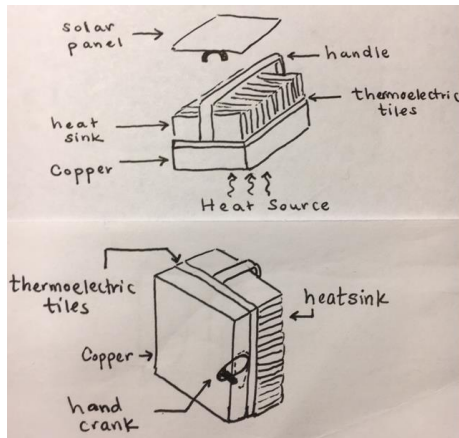 solar
panel
handle
thermoelectric
tiles
heat
sink
Copper
Heat Source
thermoelectric
tiles
heatsink
Copper
hand
crank